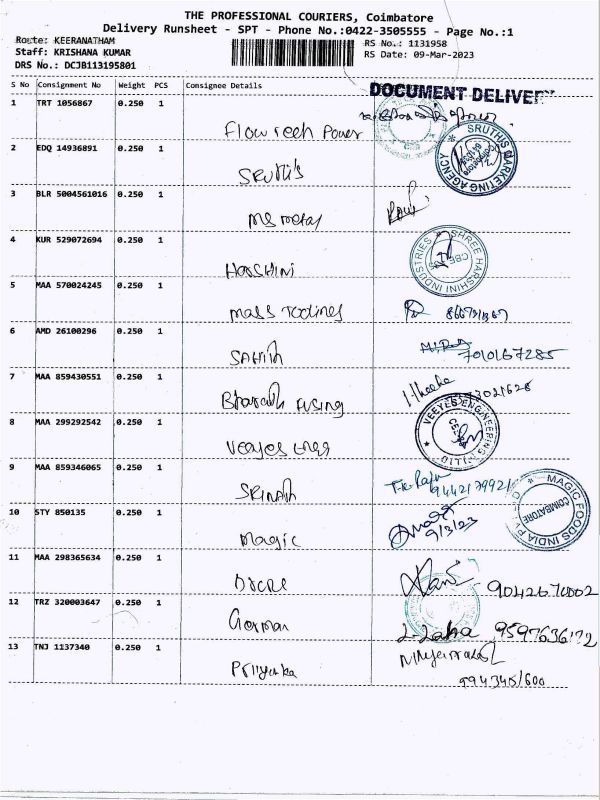 THE PROFESSIONAL COURIERS, Coimbatore
Delivery Runsheet - SPT - Phone No.:0422-3505555 - Page No.:1
Route: KEERANATHAM
RS No.: 1131958
Staff: KRISHANA KUMAR
RS Date: 09-Mar-2023
DRS No.: DCJB113195801
S No Consignment No Weight PCS Consignee Details
DOCUMENT DELIVERY
1 TRT 1056867 0.250 1
Flow Tech Power
2 EDQ 14936891 0.250 1
SRUTHI'S MARKETING AGENCY
SRuthi's
3 BLR 5004561016 0.250 1
MS metal
4 KUR 529072694 0.250 1
SHREE HARSHINI INDUSTRIES
CBE
HARSHINI
5 MAA 570024245 0.250 1
mass
6 AMD 26100296 0.250 1
7010167285
7 MAA 859430551 0.250 1
Bharath Fusing
8 MAA 299292542 0.250 1
VEEYES ENGINEERING (P) LTD
Veeyes Engg
9 MAA 859346065 0.250 1
SRINATH
10 STY 850135 0.250 1
MAGIC FOODS INDIA
COIMBATORE
9/3/23
Magic
11 MAA 298365634 0.250 1
9042670002
12 TRZ 320003647 0.250 1
German
13 TNJ 1137340 0.250 1
Priyanka